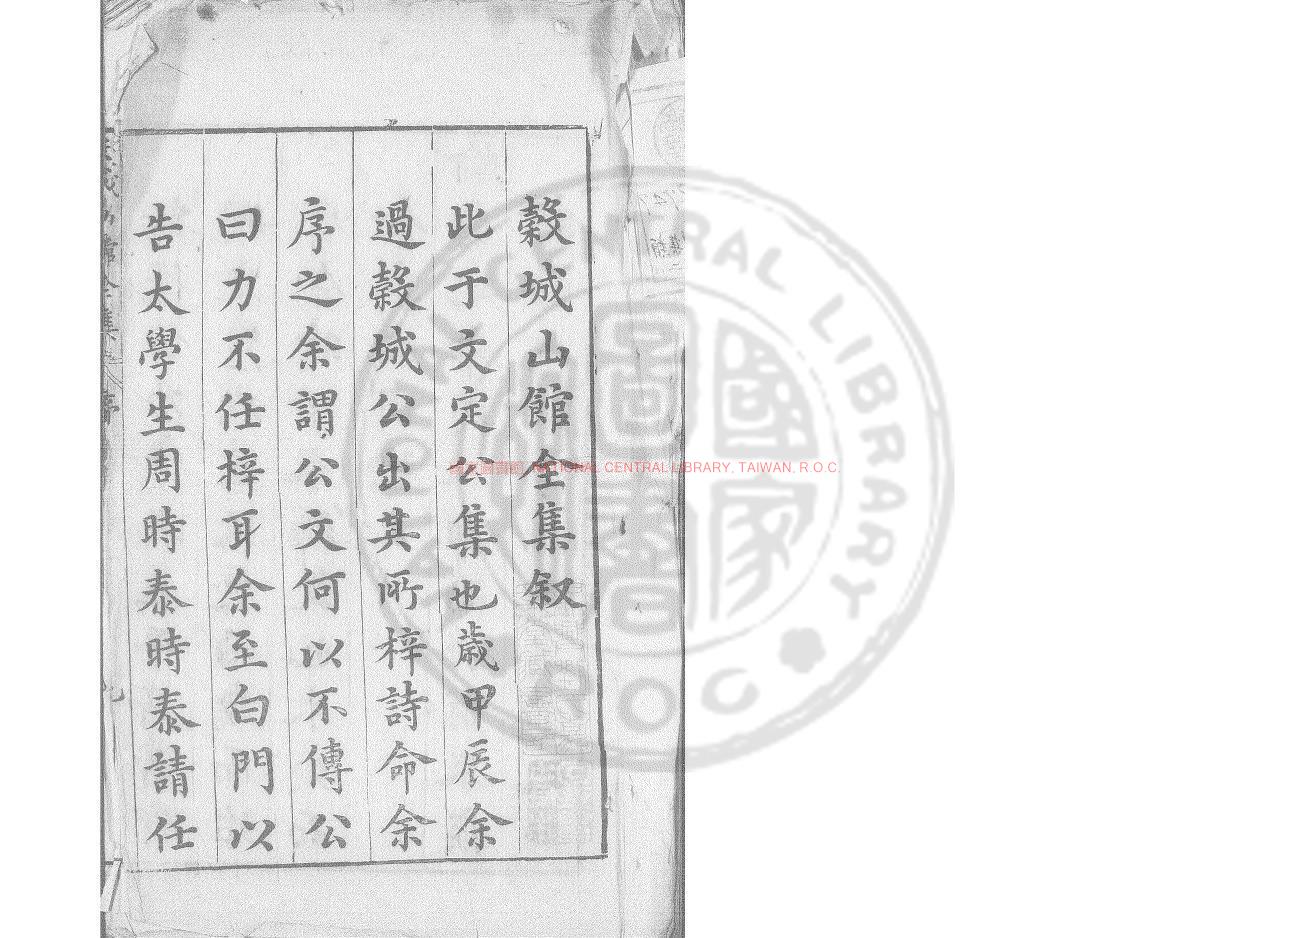 榖城山館全集叙
此于文定公集也歳甲辰余
過榖城公出其所梓詩命余
序之余謂公文何以不傳公
曰力不任梓耳余至白門以
告太學生周時泰時泰請任
國家圖書館 NATIONAL CENTRAL LIBRARY, TAIWAN, R.O.C.